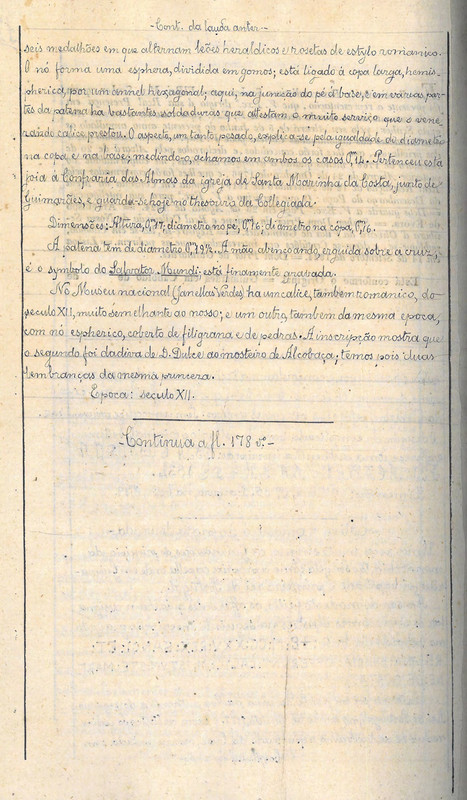 -Cont. da lauda anter.-
seis medalhões em que alternam leões heraldicos e rosetas de estylo romanico.
O nó forma uma esphera, dividida em gomos; está ligado á copa larga, hemis-
pherica, por um annel hexagonal; aqui, na juncção do pé á base, e em varias par-
tes da patena ha bastantes soldaduras que attestam o muito serviço que o vene-
rando calice prestou. O aspecto, um tanto pesado, explica-se pela igualdade do diametro
na copa e na base; medindo-o, achamos em ambos os casos 0,14. Pertenceu esta
joia á Confraria das Almas da igreja de Santa Marinha da Costa, junto de
Guimarães, e guarda-se hoje no thesouro da Collegiada.
Dimensões: Altura, 0,17; diametro no pé, 0,16; diametro na copa, 0,16.
A patena tem de diametro 0,19½. A mão abençoando, erguida sobre a cruz,
é o symbolo do Salvator Mundi; está finamente gravada.
No Museu nacional (Janellas Verdes) ha um calice, tambem romanico, do
seculo XII, muito semelhante ao nosso; e um outro, tambem da mesma epoca,
com nó espherico, coberto de filigrana e de pedras. A inscripção mostra que
o segundo foi dadiva de D. Dulce ao mosteiro de Alcobaça; temos pois duas
lembranças da mesma princeza.
Epoca: seculo XII.
-Continua a fl. 178 vº-